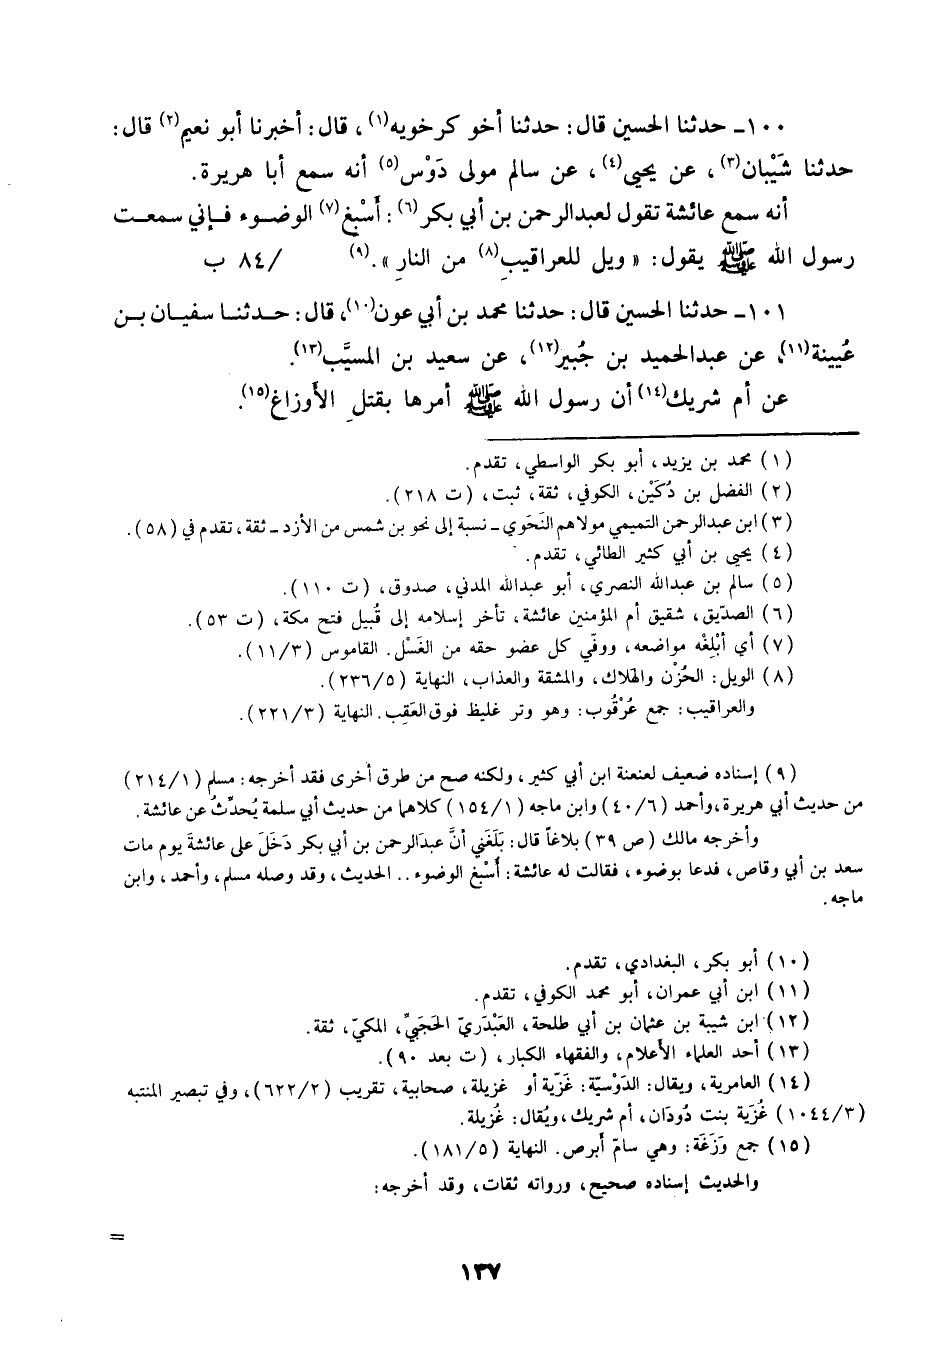 ١٠٠ـ حدثنا الحسين قال: حدثنا أخو كرخويه(١)، قال: أخبرنا أبو نعيم(٢) قال:
حدثنا شَيْبان(٣)، عن يحيى(٤)، عن سالم مولى دَوْس(٥) أنه سمع أبا هريرة.
أنه سمع عائشة تقول لعبدالرحمن بن أبي بكر(٦): أَسْبِغ(٧) الوضوء فإني سمعت
رسول الله ﷺ يقول: «ويل للعراقيب(٨) من النار».(٩) /٨٤ ب
١٠١ـ حدثنا الحسين قال: حدثنا محمد بن أبي عون(١٠)، قال: حدثنا سفيان بن
عُيينة(١١)، عن عبدالحميد بن جُبير(١٢)، عن سعيد بن المسيَّب(١٣).
عن أم شريك(١٤) أن رسول الله ﷺ أمرها بقتل الأوزاغ(١٥).
(١) محمد بن يزيد، أبو بكر الواسطي، تقدم.
(٢) الفضل بن دُكَيْن، الكوفي، ثقة، ثبت، (ت ٢١٨).
(٣) ابن عبدالرحمن التميمي مولاهم النَحَوي ـ نسبة إلى نحو بن شمس من الأزد ـ ثقة، تقدم في (٥٨).
(٤) يحيى بن أبي كثير الطائي، تقدم.
(٥) سالم بن عبدالله النصري، أبو عبدالله المدني، صدوق، (ت ١١٠).
(٦) الصدّيق، شقيق أم المؤمنين عائشة، تأخر إسلامه إلى قُبيل فتح مكة، (ت ٥٣).
(٧) أي أبْلِغْه مواضعه، ووفّي كل عضو حقه من الغَسْل. القاموس (١١/٣).
(٨) الويل: الحُزْن والهلاك، والمشقة والعذاب، النهاية (٢٣٦/٥).
والعراقيب: جمع عُرْقُوب: وهو وتر غليظ فوق العَقِب. النهاية (٢٢١/٣).
(٩) إسناده ضعيف لعنعنة ابن أبي كثير، ولكنه صح من طرق أخرى فقد أخرجه: مسلم (٢١٤/١)
من حديث أبي هريرة، وأحمد (٤٠/٦) وابن ماجه (١٥٤/١) كلاهما من حديث أبي سلمة يُحدِّثُ عن عائشة.
وأخرجه مالك (ص ٣٩) بلاغاً قال: بَلَغَني أنَّ عبدَالرحمن بن أبي بكر دَخَلَ على عائشةَ يوم مات
سعد بن أبي وقاص، فدعا بوضوء، فقالت له عائشة: أَسْبِغِ الوضوء.. الحديث، وقد وصله مسلم، وأحمد، وابن
ماجه.
(١٠) أبو بكر، البغدادي، تقدم.
(١١) ابن أبي عمران، أبو محمد الكوفي، تقدم.
(١٢) ابن شيبة بن عثمان بن أبي طلحة، العَبْدَريّ الحَجَبيّ، المكيّ، ثقة.
(١٣) أحد العلماء الأعلام، والفقهاء الكبار، (ت بعد ٩٠).
(١٤) العامرية، ويقال: الدَوْسيّة: غَزّية أو غزيلة، صحابية، تقريب (٦٢٢/٢)، وفي تبصير المنتبه
(١٠٤٤/٣) غُزَية بنت دُودَان، أم شريك، ويُقال: غُزيلة.
(١٥) جمع وَزَغَة: وهي سامّ أبرص. النهاية (١٨١/٥).
والحديث إسناده صحيح، ورواته ثقات، وقد أخرجه:
=
١٣٧